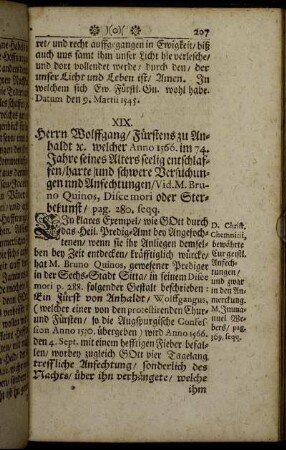 (o) 207
ret/ und recht auffgegangen in Ewigkeit/ biß
auch uns samt ihm unser Licht hie verlesche/
und dort vollendet werde/ durch den/ der
unser Licht und Leben ist/ Amen. In
welchem sich Ew. Fürstl. Gn. wohl habe.
Datum den 9. Martii 1545.
XIX.
Herrn Wolffgang/ Fürstens zu An-
haldt ꝛc. welcher Anno 1566. im 74.
Jahre seines Alters seelig entschlaf-
fen/ harte und schwere Versuchun-
gen und Anfechtungen/ Vid. M. Bru-
no Quinos, Disce mori oder Ster-
bekunst/ pag. 280. seqq.
Ein klares Exempel/ wie GOtt durch
das Heil. Predig-Amt bey Angefoch-
tenen/ wenn sie ihr Anliegen demsel-
ben bey Zeit entdecken/ kräfftiglich würcke/
hat M. Bruno Quinos, gewesener Prediger
in der Sechs-Stadt Sitta/ in seinem Disce
mori p. 288. folgender Gestalt beschrieben:
Ein Fürst von Anhaldt/ Wolffgangus,
( welcher einer von den protestirenden Chur-
und Fürsten/ so die Augspurgische Confes-
sion Anno 1530. übergeben) ward Anno 1566.
den 4. Sept. mit einem hefftigen Fieber befal-
len/ worbey zugleich GOtt vier Tagelang
treffliche Anfechtung/ sonderlich des
Nachts/ über ihn verhängete/ welche
ihm
D. Christ.
Chemnitii,
bewährte
Cur geistl.
Anfech-
tungen/
und zwar
in den An-
merckung.
M. Imma-
nuel We-
bers/ pag.
369. seqq.